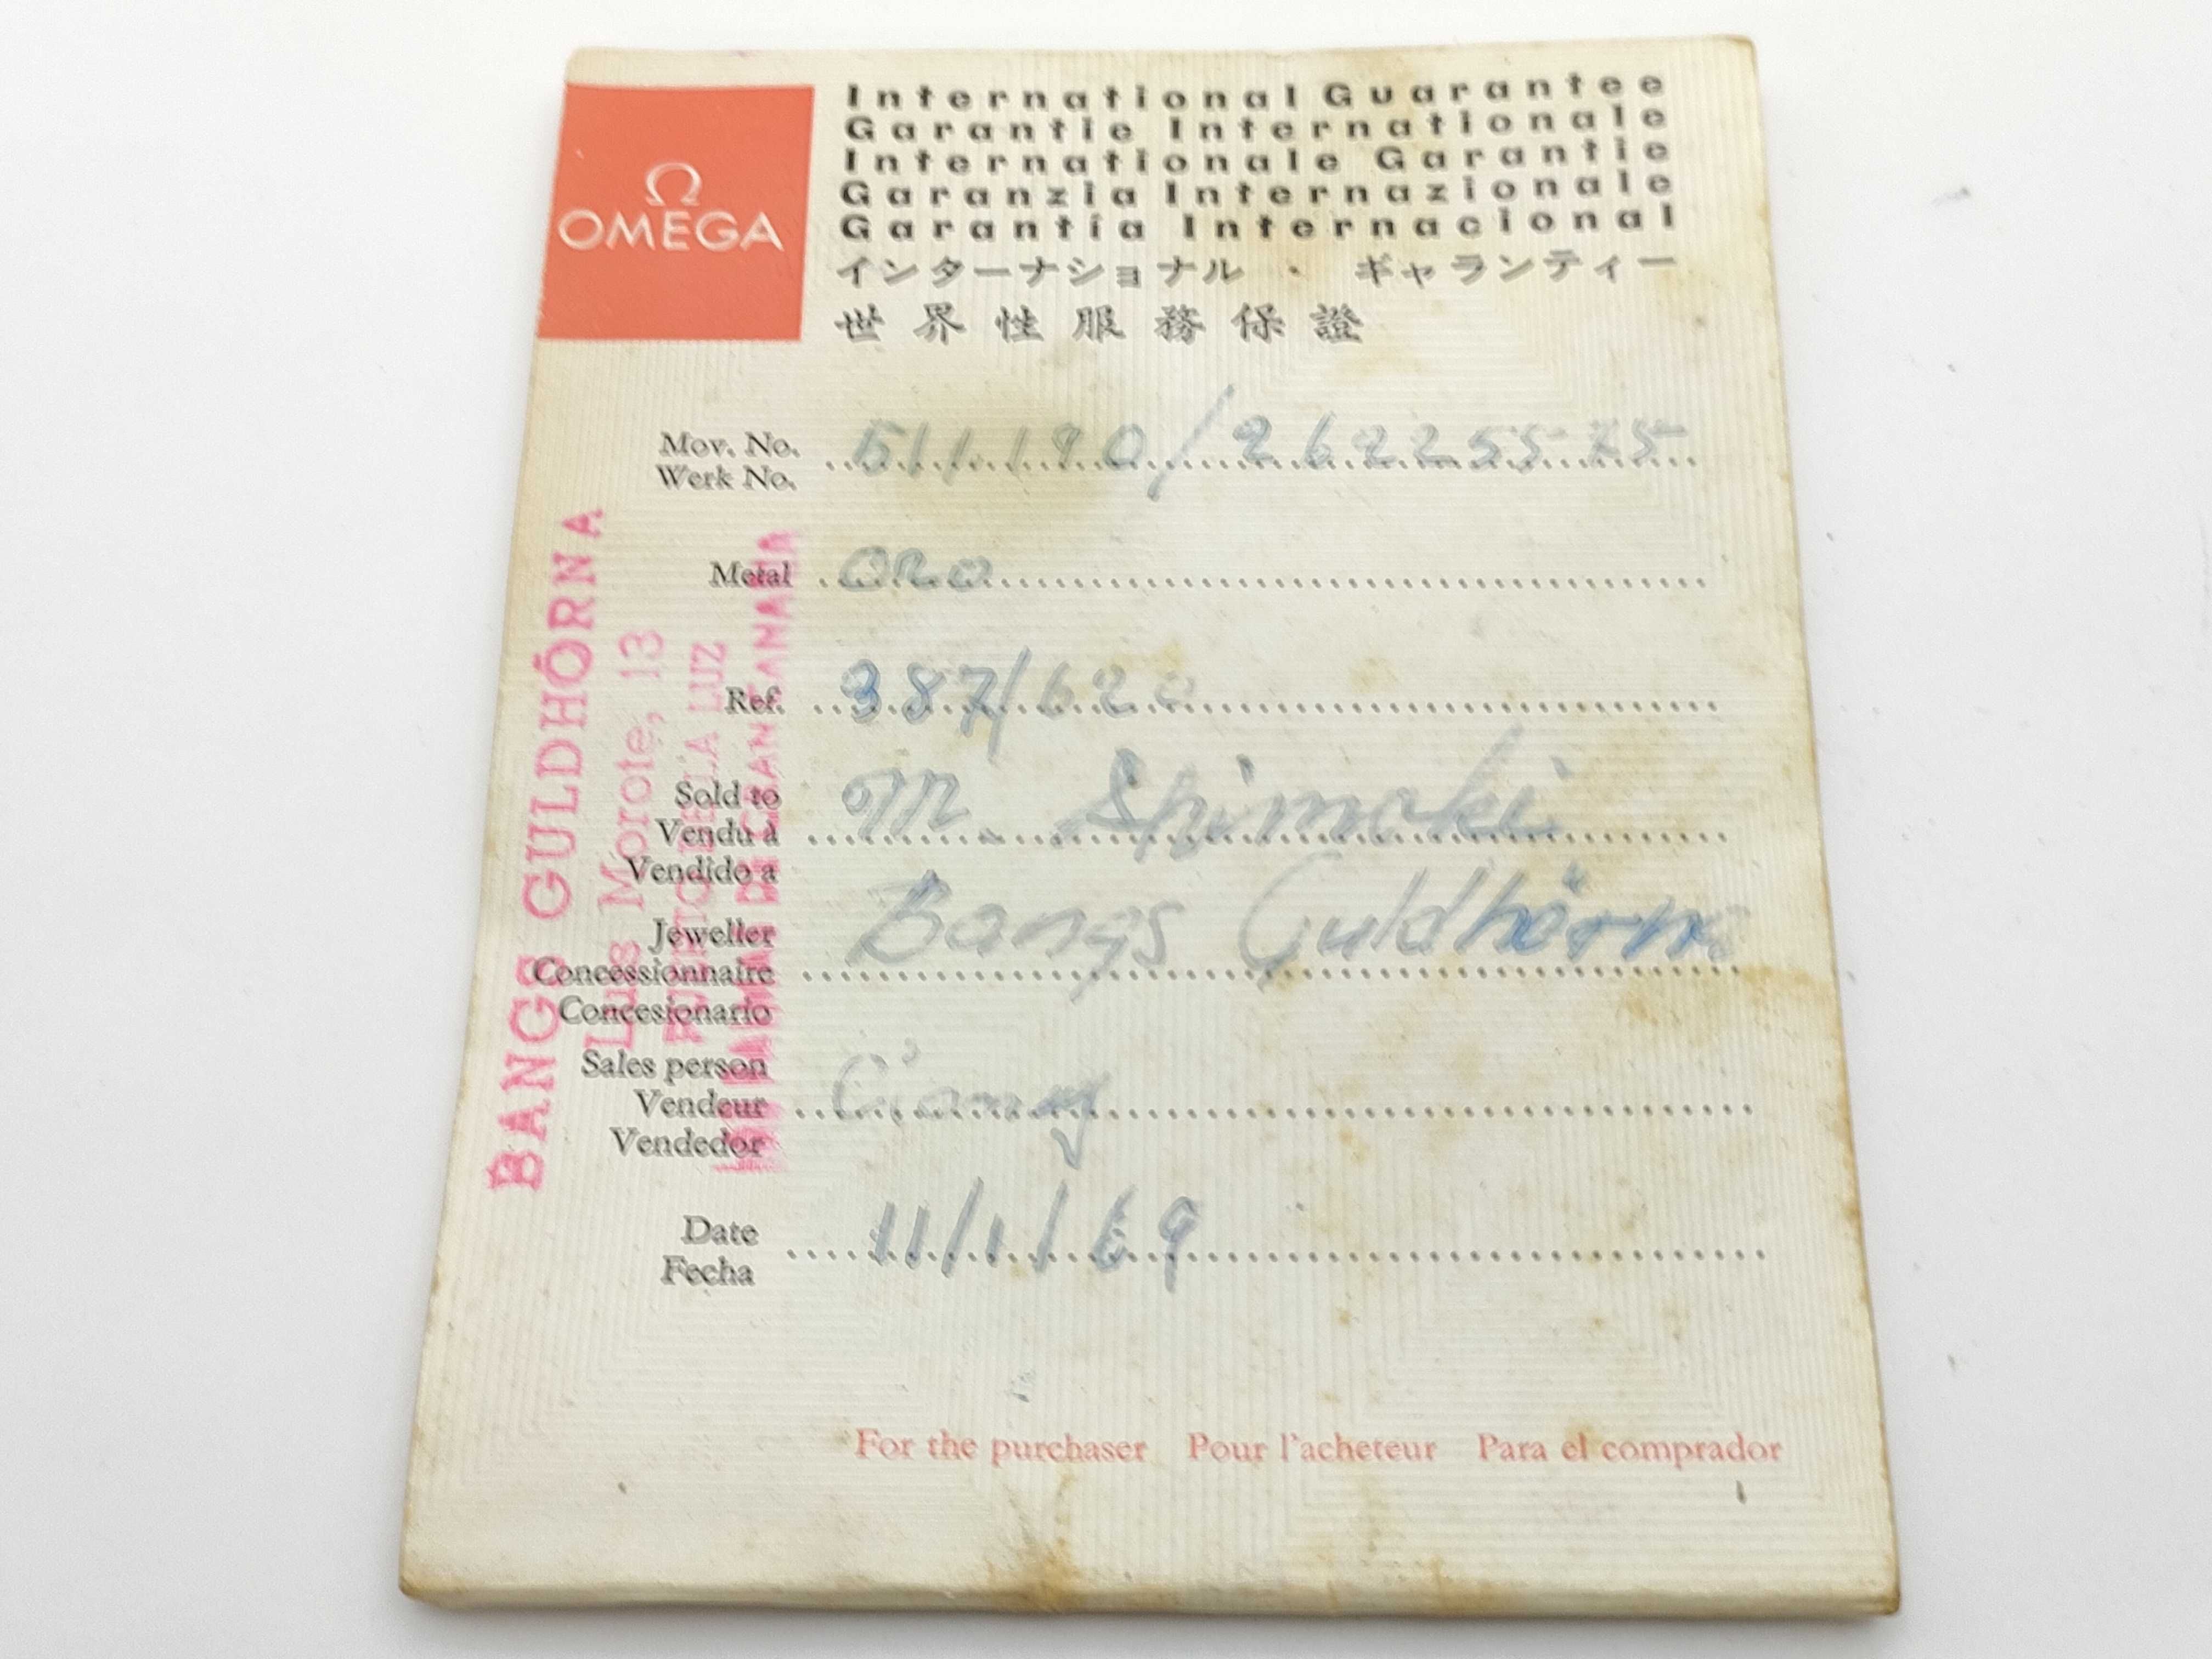 Ω
OMEGA
International Guarantee
Garantie Internationale
Internationale Garantie
Garanzia Internazionale
Garantía Internacional
インターナショナル ・ ギャランティー
世界性服務保證
Mov. No.
Werk No.
511.190/26225575
Metal Oro
Ref. 387/620
Sold to
Vendu à
Vendido a
M.
Jeweller
Concessionnaire
Concesionario
Bangs Guldhörna
Sales person
Vendeur
Vendedor
Date
Fecha
11/1/69
For the purchaser Pour l'acheteur Para el comprador
BANGS GULDHÖRNA
Luis Morote, 13
PUERTO DE LA LUZ
LAS PALMAS DE GRAN CANARIA